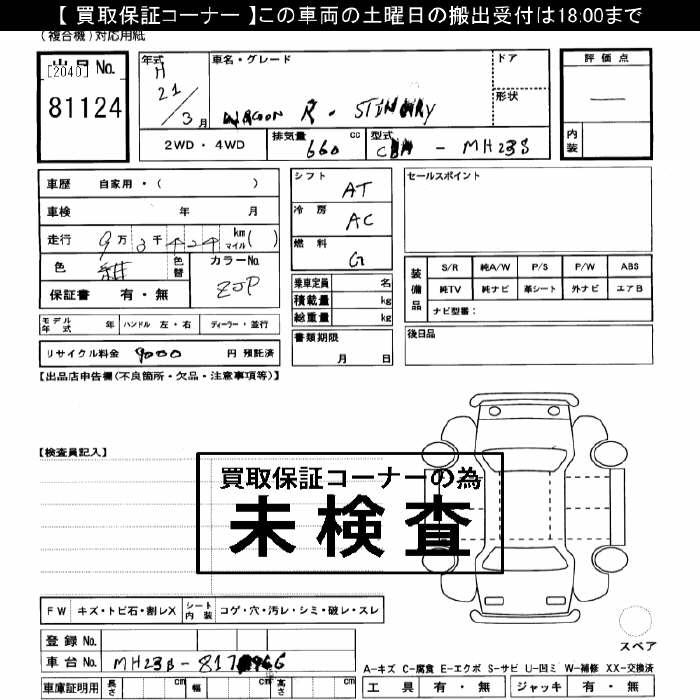 【 買取保証コーナー 】この車両の土曜日の搬出受付は18:00まで
(複合機)対応用紙
出品 No.
[2040]
81124
年式 H 21 / 3 月
車名・グレード
WAGON R・STINGRAY
ドア
形状
評価点
内装
2WD・4WD
排気量 660 cc
型式 - MH23S
車歴 自家用・( )
車検 年 月
走行 9万3千424 km マイル ( )
色
色替
カラーNo. ZJP
保証書 有・無
モデル年式 年 ハンドル 左・右 ディーラー・並行
リサイクル料金 9000 円 預託済
シフト AT
冷房 AC
燃料 G
乗車定員 名
積載量 kg
総重量 kg
書類期限
月 日
セールスポイント
装備品
S/R 純A/W P/S P/W ABS
純TV 純ナビ 革シート 外ナビ エアB
ナビ型番:
後日品
【出品店申告欄(不良箇所・欠品・注意事項等)】
【検査員記入】
買取保証コーナーの為
未検査
FW キズ・トビ石・割レX
シート内装 コゲ・穴・汚レ・シミ・破レ・スレ
登録 No.
車台 No.
車庫証明用 長さ cm 幅 cm 高さ cm
スペア
A-キズ C-腐食 E-エクボ S-サビ U-凹ミ W-補修 XX-交換済
工具 有・無 ジャッキ 有・無